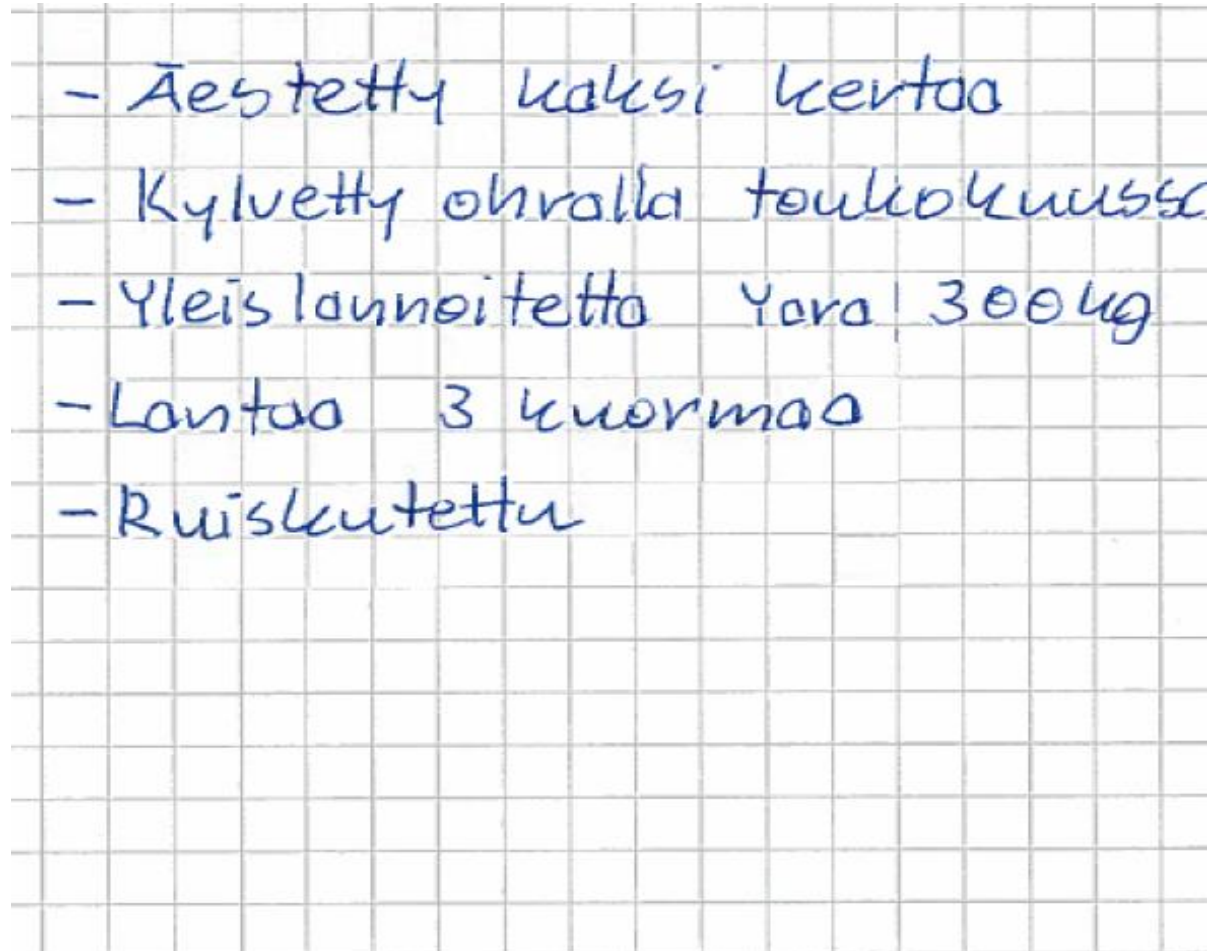 - Äestetty kaksi kertaa
- Kylvetty ohralla toukokuussa
- Yleislannoitetta Yara 300kg
- Lantaa 3 kuormaa
- Ruiskutettu